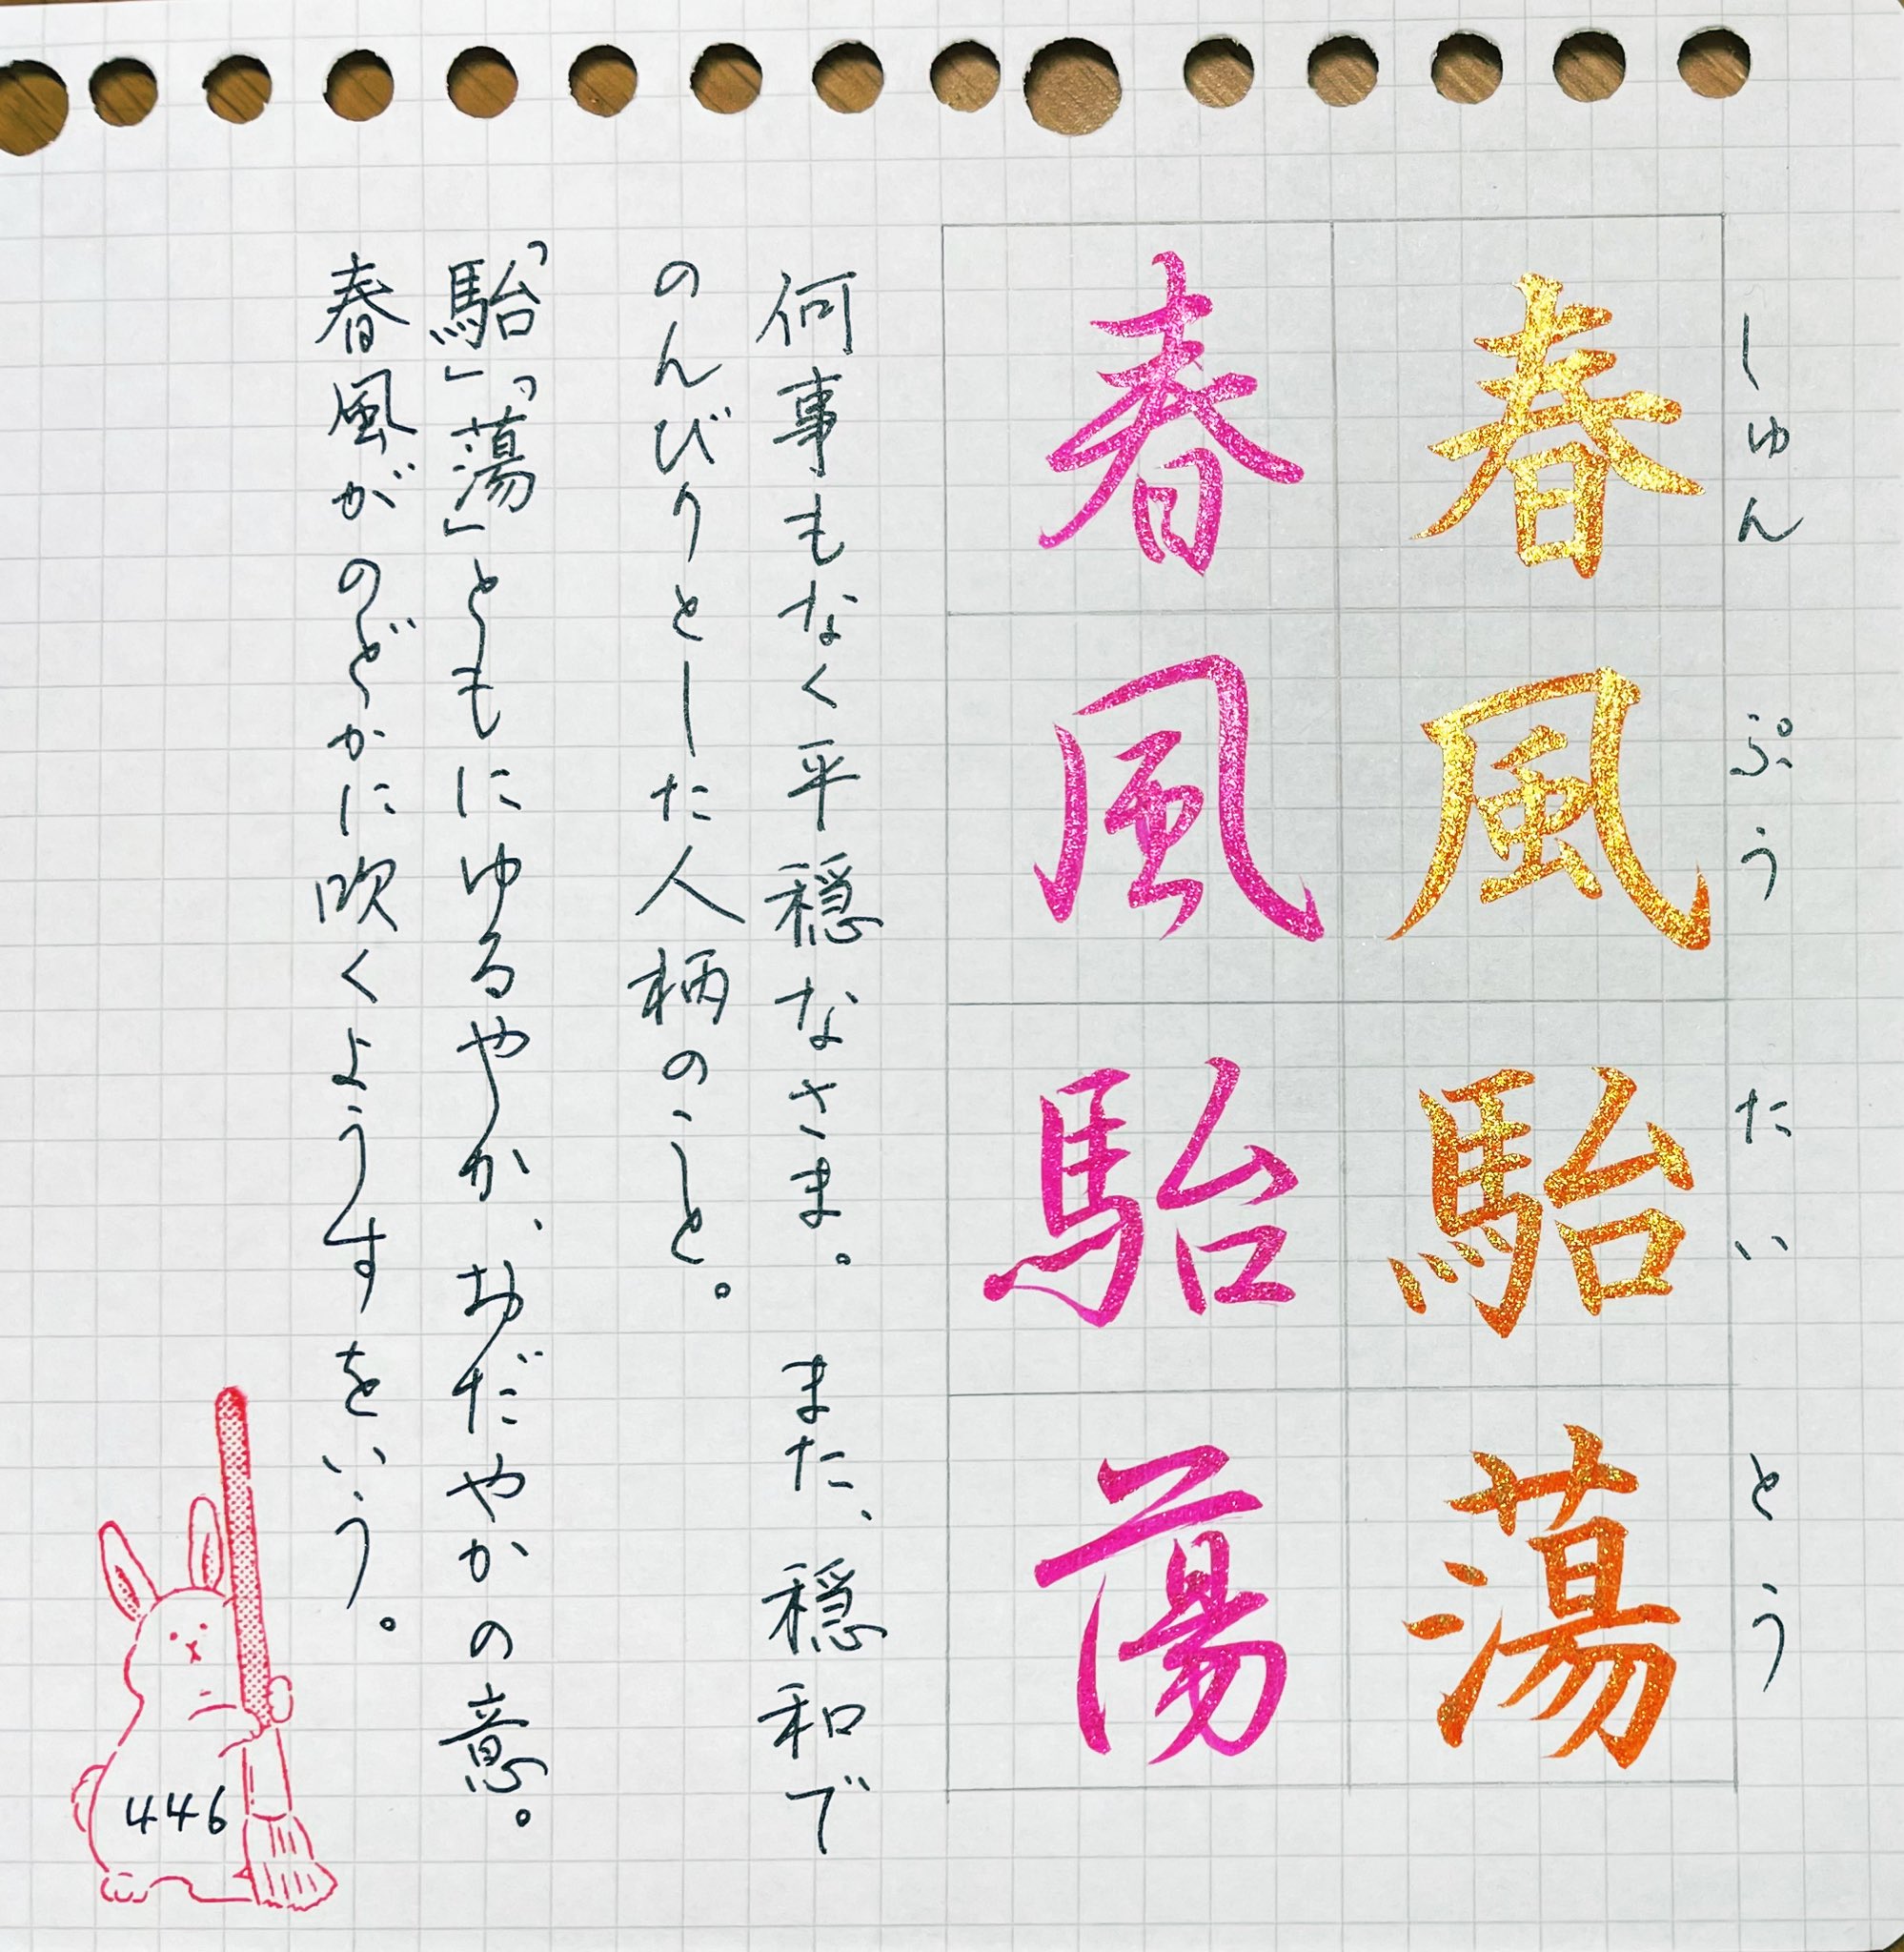 しゅん ぷう たい とう
春風駘蕩
春風駘蕩
何事もなく平穏なさま。また、穏和で
のんびりとした人柄のこと。
「駘」「蕩」ともにゆるやか、おだやかの意。
春風がのどかに吹くようすをいう。
446